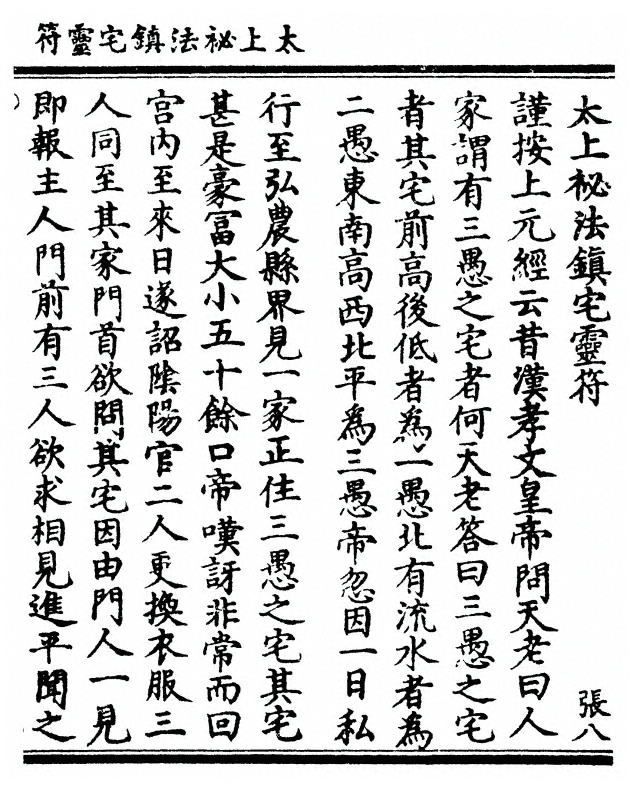 太上祕法鎮宅靈符
太上祕法鎮宅靈符 張八
謹按上元經云昔漢孝文皇帝問天老曰人
家謂有三愚之宅者何天老答曰三愚之宅
者其宅前高後低者為一愚北有流水者為
二愚東南高西北平為三愚帝忽因一日私
行至弘農縣界見一家正住三愚之宅其宅
甚是豪冨大小五十餘口帝嘆訝非常而回
宮内至來日遂詔陰陽官二人更換衣服三
人同至其家門首欲問其宅因由門人一見
即報主人門前有三人欲求相見進平聞之